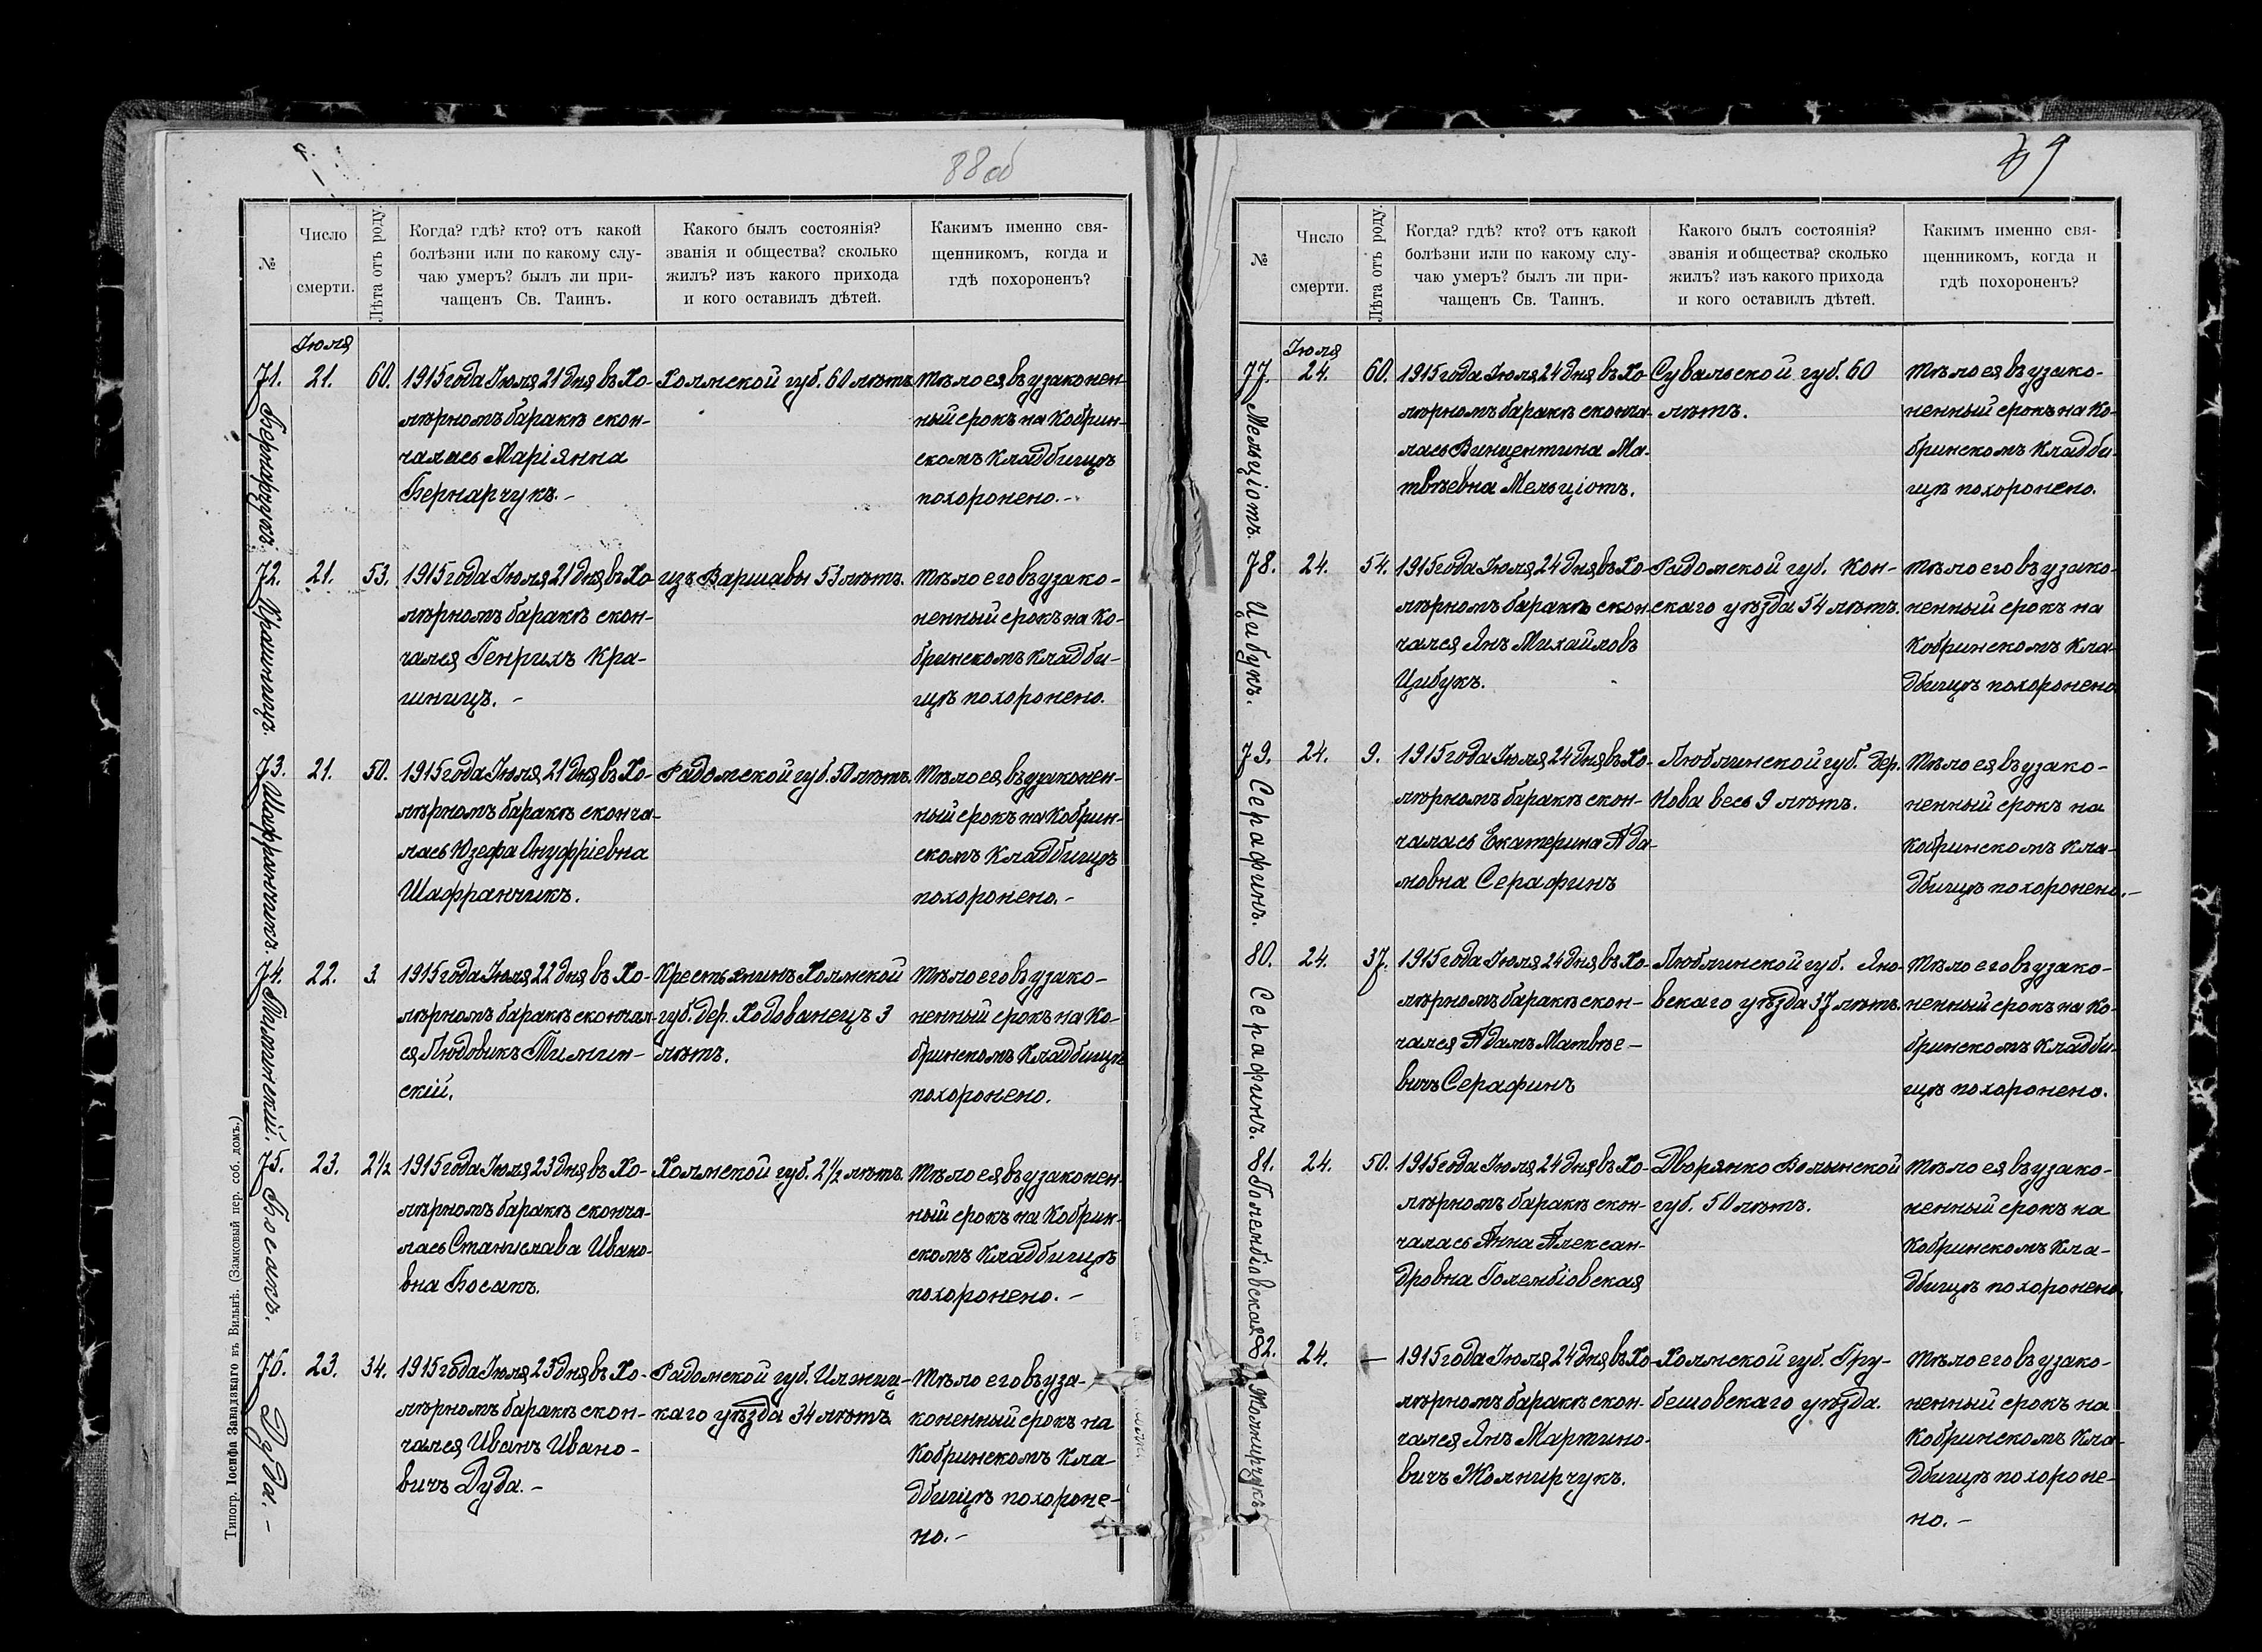 88 об
№
Число смерти.
Лѣта отъ роду.
Когда? гдѣ? кто? отъ какой
болѣзни или по какому слу-
чаю умеръ? былъ ли при-
чащенъ Св. Таинъ.
Какого былъ состоянія?
званія и общества? сколько
жилъ? изъ какого прихода
и кого оставилъ дѣтей.
Какимъ именно свя-
щенникомъ, когда и
гдѣ похороненъ?
Іюля
71.
Бернарчукъ.
21.
60.
1915 года Іюля 21 дня въ Хо-
лѣрномъ баракѣ скон-
чалась Маріянна
Бернарчукъ. -
Холмской губ. 60 лѣтъ
Тѣло ея въ узаконен-
ный срокъ на Кобрин-
скомъ Кладбищѣ
похоронено. -
72.
Крашницъ.
21.
53.
1915 года Іюля 21 дня въ Хо-
лѣрномъ баракѣ скон-
чался Генрихъ Кра-
шницъ. -
изъ Варшавы 53 лѣтъ.
Тѣло его въ узако-
ненный срокъ на Ко-
бринскомъ Кладби-
щѣ похоронено.
73.
Шафранчикъ.
21.
50.
1915 года Іюля 21 дня въ Хо-
лѣрномъ баракѣ сконча-
лась Юзефа Онуфріевна
Шафранчикъ.
Радомской губ. 50 лѣтъ.
Тѣло ея въ узаконен-
ный срокъ на Кобрин-
скомъ Кладбищѣ
похоронено. -
74.
Тиминскій.
22.
3.
1915 года Іюля 22 дня въ Хо-
лѣрномъ баракѣ скончал-
ся Людовикъ Тимин-
скій.
Крестьянинъ Холмской
губ. дер. Ходованецъ 3
лѣтъ.
Тѣло его въ узако-
ненный срокъ на Ко-
бринскомъ Кладбищѣ
похоронено.
75.
Босакъ.
23.
2½
1915 года Іюля 23 дня въ Хо-
лѣрномъ баракѣ сконча-
лась Станислава Ивано-
вна Босакъ.
Холмской губ. 2½ лѣтъ.
Тѣло ея въ узаконен-
ный срокъ на Кобрин-
скомъ Кладбищѣ
похоронено. -
76.
Дуда. -
23.
34.
1915 года Іюля 23 дня въ Хо-
лѣрномъ баракѣ скон-
чался Иванъ Ивано-
вичъ Дуда. -
Радомской губ. Илжиц-
каго уѣзда 34 лѣтъ
Тѣло его въ уза-
коненный срокъ на
Кобринскомъ Кла-
дбищѣ похороне-
но. -
Типогр. Іосифа Завадзкаго въ Вильнѣ. (Замковый пер. соб. домъ.)
89
№
Число смерти.
Лѣта отъ роду.
Когда? гдѣ? кто? отъ какой
болѣзни или по какому слу-
чаю умеръ? былъ ли при-
чащенъ Св. Таинъ.
Какого былъ состоянія?
званія и общества? сколько
жилъ? изъ какого прихода
и кого оставилъ дѣтей.
Какимъ именно свя-
щенникомъ, когда и
гдѣ похороненъ?
Іюля
77.
Мельціотъ.
24.
60.
1915 года Іюля 24 дня въ Хо-
лѣрномъ баракѣ сконча-
лась Винцентина Ма-
твѣевна Мельціотъ.
Сувальской губ. 60
лѣтъ.
Тѣло ея въ узако-
ненный срокъ на Ко-
бринскомъ Кладби-
щѣ похоронено.
78.
Цибукъ.
24.
54.
1915 года Іюля 24 дня въ Хо-
лѣрномъ баракѣ скон-
чался Янъ Михайловъ
Цибукъ.
Радомской губ. Кон-
скаго уѣзда 54 лѣтъ.
Тѣло его въ узако-
ненный срокъ на
Кобринскомъ Кла-
дбищѣ похоронено
79.
Серафинъ.
24.
9.
1915 года Іюля 24 дня въ Хо-
лѣрномъ баракѣ скон-
чалась Екатерина Ада-
мовна Серафинъ
Люблинской губ. дер.
Нова весь 9 лѣтъ.
Тѣло ея въ узако-
ненный срокъ на
Кобринскомъ Кла-
дбищѣ похоронено. -
80.
Серафинъ.
24.
37.
1915 года Іюля 24 дня въ Хо-
лѣрномъ баракѣ скон-
чался Адамъ Матвѣе-
вичъ Серафинъ
Люблинской губ. Яно-
вскаго уѣзда 37 лѣтъ.
Тѣло его въ узако-
ненный срокъ на Ко-
бринскомъ Кладби-
щѣ похоронено.
81.
Голембіовская
24.
50.
1915 года Іюля 24 дня въ Хо-
лѣрномъ баракѣ скон-
чалась Анна Алексан-
дровна Голембіовская
Дворянко Волынской
губ. 50 лѣтъ.
Тѣло ея въ узако-
ненный срокъ на
Кобринскомъ Кла-
дбищѣ похоронено
82.
Жолнирчукъ
24.
—
1915 года Іюля 24 дня въ Хо-
лѣрномъ баракѣ скон-
чался Янъ Мартино-
вичъ Жолнирчукъ.
Холмской губ. Гру-
бешовскаго уѣзда.
Тѣло его въ узако-
ненный срокъ на
Кобринскомъ Кла-
дбищѣ похороне-
но. -